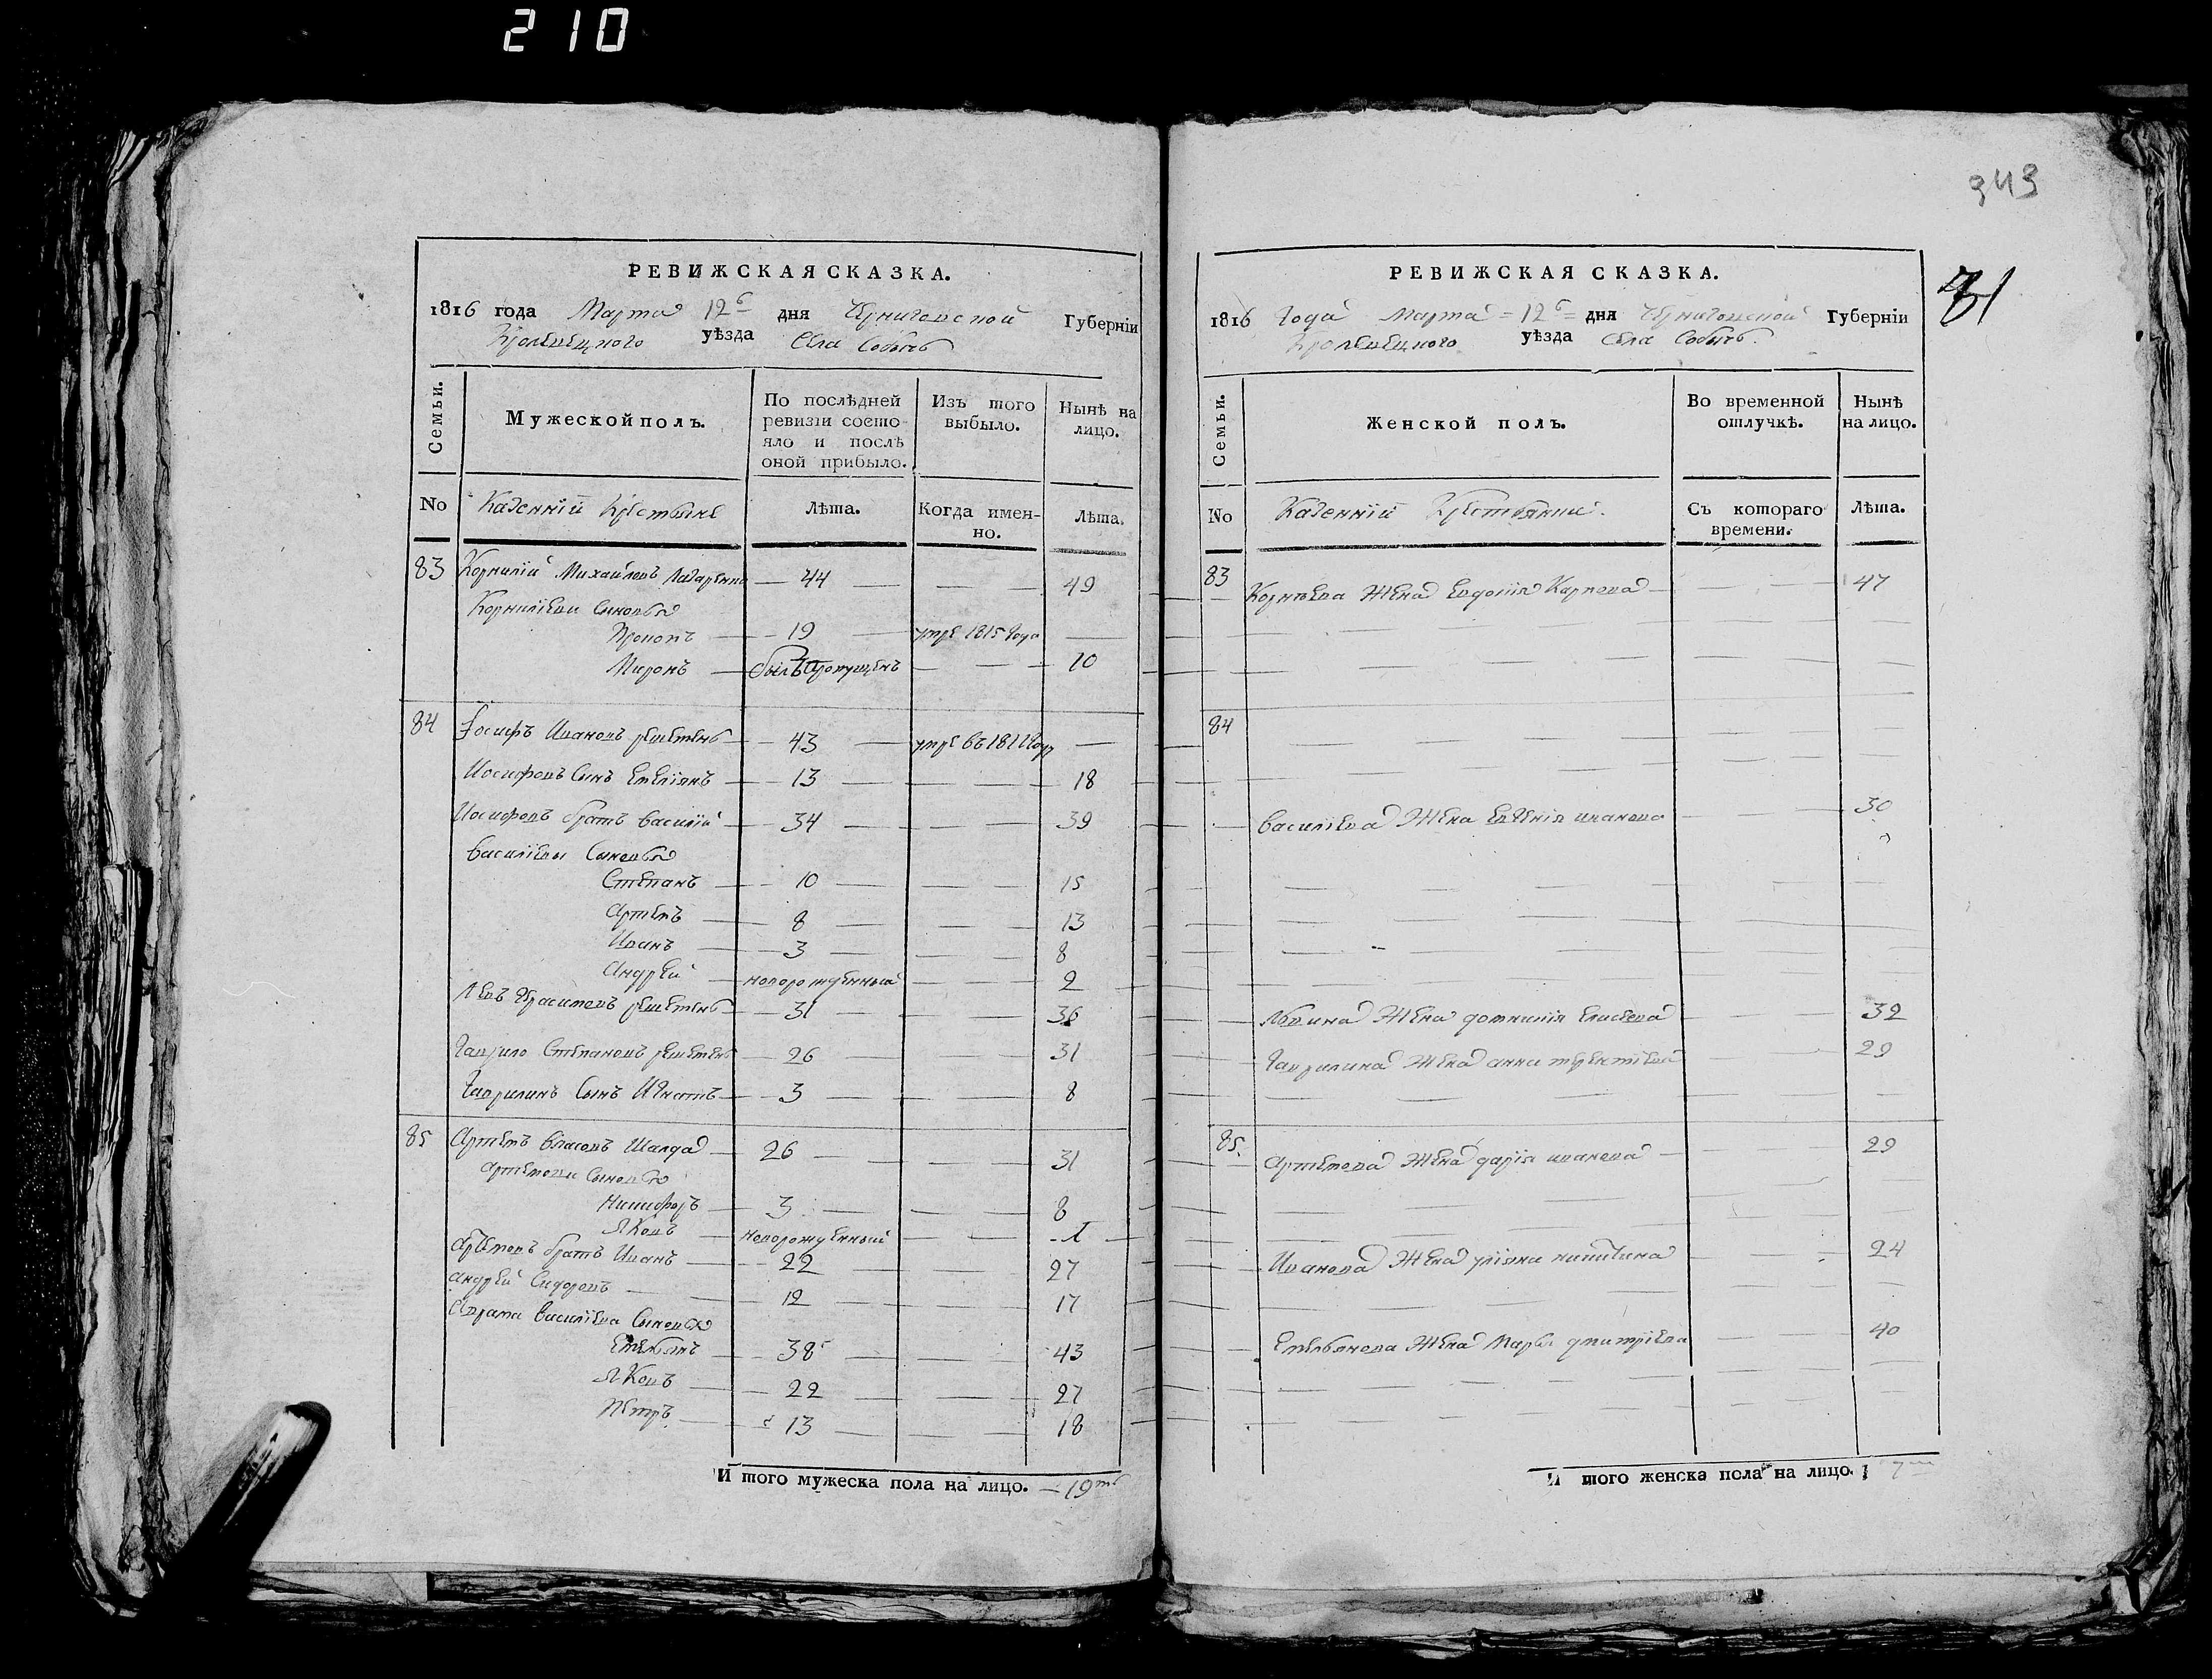 210
943
31
РЕВИЖСКАЯ СКАЗКА.
1816 года Марта 12 дня Черниговской Губерніи
Кролевецкого уѣзда Села Собычь
Семьи.
Мужеской полъ.
По послѣдней ревизіи состо-
яло и послѣ
оной прибыло.
Изъ того
выбыло.
Нынѣ на
лицо.
No Казенніи Крестьяне Лѣта. Когда имен-
но. Лѣта.
83 Корнилій Михайловъ Лазаренко — 44 — — — 49
Корниліеви Сыновья
Прокопъ — 19 — умре 1815 года —
Миронъ — былъ пропущенъ — — 10
84 Іосифъ Ивановъ — 43 — умре въ 1811 году —
Иосифовъ Сынъ Емеліянъ — 13 — — — 18
Иосифовъ братъ Василій — 34 — — — 39
Василіевы Сыновья
Степанъ — 10 — — — 15
Артемъ — 8 — — — 13
Иванъ — 3 — — — 8
Андрей — новорожденный — — — 2
Левъ Герасимовъ — 31 — — — 36
Гаврило Степановъ — 26 — — — 31
Гаврилинъ Сынъ Игнатъ — 3 — — — 8
85 Артемъ Власовъ Шалда — 26 — — — 31
Артемови Сыновья
Никифоръ — 3 — — — 8
Яковъ — новорожденный — — 1
Артемовъ братъ Иванъ — 22 — — — 27
Андрей Сидоровъ — 12 — — — 17
Аврама Василіева Сыновья
Емельянъ — 38 — — — 43
Яковъ — 22 — — — 27
Петръ — 13 — — — 18
И того мужеска пола на лицо. — 19
РЕВИЖСКАЯ СКАЗКА.
1816 Года Марта = 12 = дня Черниговской Губерніи
Кролевецкого уѣзда Села Собычь.
Семьи.
Женской полъ.
Во временной
отлучкѣ.
Нынѣ
на лицо.
No Казенніи Крестьянки. Съ котораго
времени. Лѣта.
83 Корнѣева Жена Евдокія Карпова — — — 47
84
Василіева Жена Евгенія иванова — 30
Львина Жена домникія Елисеева — — 32
Гаврилина Жена анна терентіева — — 29
85. Артемова Жена дарія иванова — — — 29
Иванова Жена уліяна никитина — — 24
Емельянова Жена Марья дмитріева — — 40
И того женска пола на лицо. 7